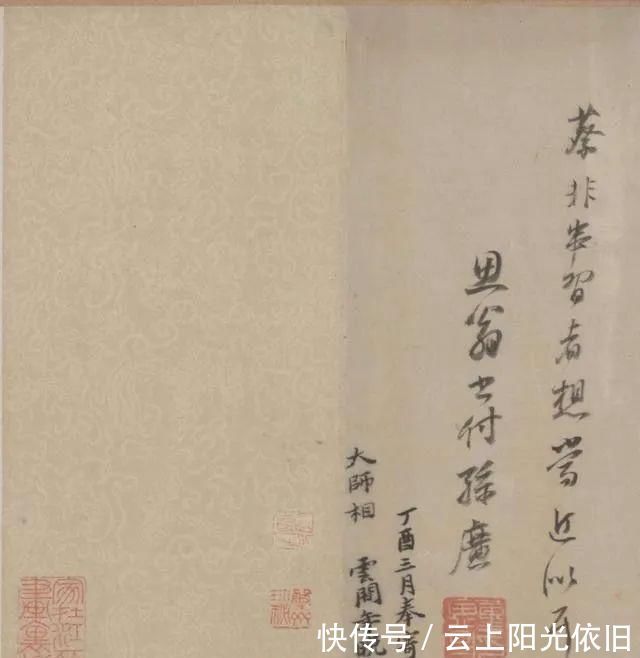 蔡非串習者想當近似耳
思翁書付孫廣
丁酉三月奉寄
大師相 雲間
快传号/云上阳光依旧